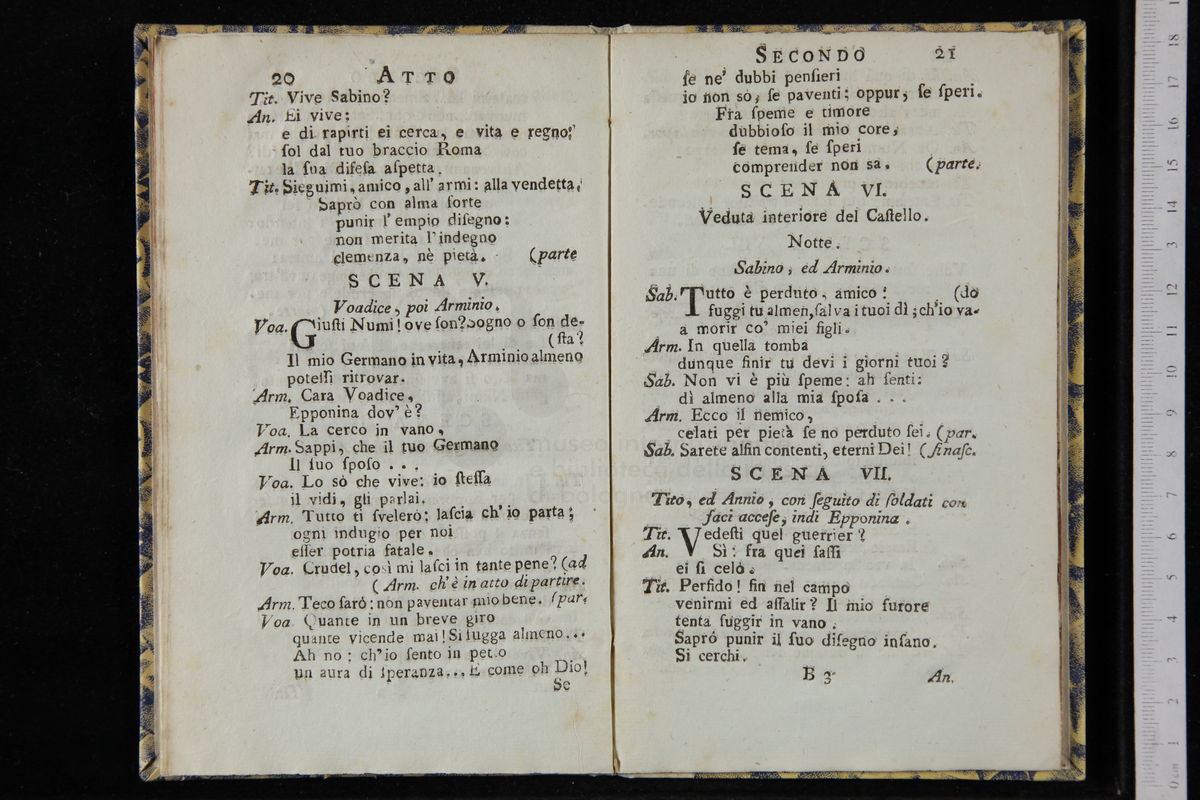 20 ATTO
Tit. Vive Sabino?
An. Ei vive:
e di rapirti ei cerca, e vita e regno;
ſol dal tuo braccio Roma
la ſua difeſa aſpetta.
Tit. Sieguimi, amico, all' armi: alla vendetta.
Saprò con alma forte
punir l' empio diſegno:
non merita l'indegno
clemenza, nè pietà. (parte
SCENA V.
Voadice, poi Arminio.
Voa. Giuſti Numi! ove ſon? Sogno o ſon de-
(ſta?
Il mio Germano in vita, Arminio almeno
poteſſi ritrovar.
Arm. Cara Voadice,
Epponina dov' è?
Voa. La cerco in vano,
Arm. Sappi, che il tuo Germano
Il ſuo ſpoſo . . .
Voa. Lo sò che vive: io ſteſſa
il vidi, gli parlai.
Arm. Tutto ti ſvelerò; laſcia ch' io parta;
ogni indugio per noi
eſſer potria fatale.
Voa. Crudel, così mi laſci in tante pene? (ad
(Arm. ch' è in atto di partire.
Arm. Teco ſaró: non paventar mio bene. (par.
Voa Quante in un breve giro
quante vicende mai! Si fugga almeno...
Ah no: ch' io ſento in petto
un aura di ſperanza... E come oh Dio!
Se
SECONDO 21
ſe ne' dubbi penſieri
io non sò, ſe paventi; oppur, ſe ſperi.
Fra ſpeme e timore
dubbioſo il mio core,
ſe tema, ſe ſperi
comprender non sa. (parte.
SCENA VI.
Veduta interiore del Caſtello.
Notte.
Sabino, ed Arminio.
Sab. Tutto è perduto, amico: (do
fuggi tu almen, ſalva i tuoi dì; ch'io va-
a morir co' miei figli.
Arm. In quella tomba
dunque finir tu devi i giorni tuoi?
Sab. Non vi è più ſpeme: ah ſenti:
dì almeno alla mia ſpoſa . . .
Arm. Ecco il nemico,
celati per pietà ſe no perduto ſei. (par.
Sab. Sarete alfin contenti, eterni Dei! (ſi naſc.
SCENA VII.
Tito, ed Annio, con ſeguito di ſoldati con
faci acceſe, indi Epponina.
Tit. Vedeſti quel guerrier?
An. Sì: fra quei ſaſſi
ei ſi celò.
Tit. Perfido! fin nel campo
venirmi ed aſſalir? Il mio furore
tenta fuggir in vano.
Sapró punir il ſuo diſegno inſano.
Si cerchi.
B 3 An.